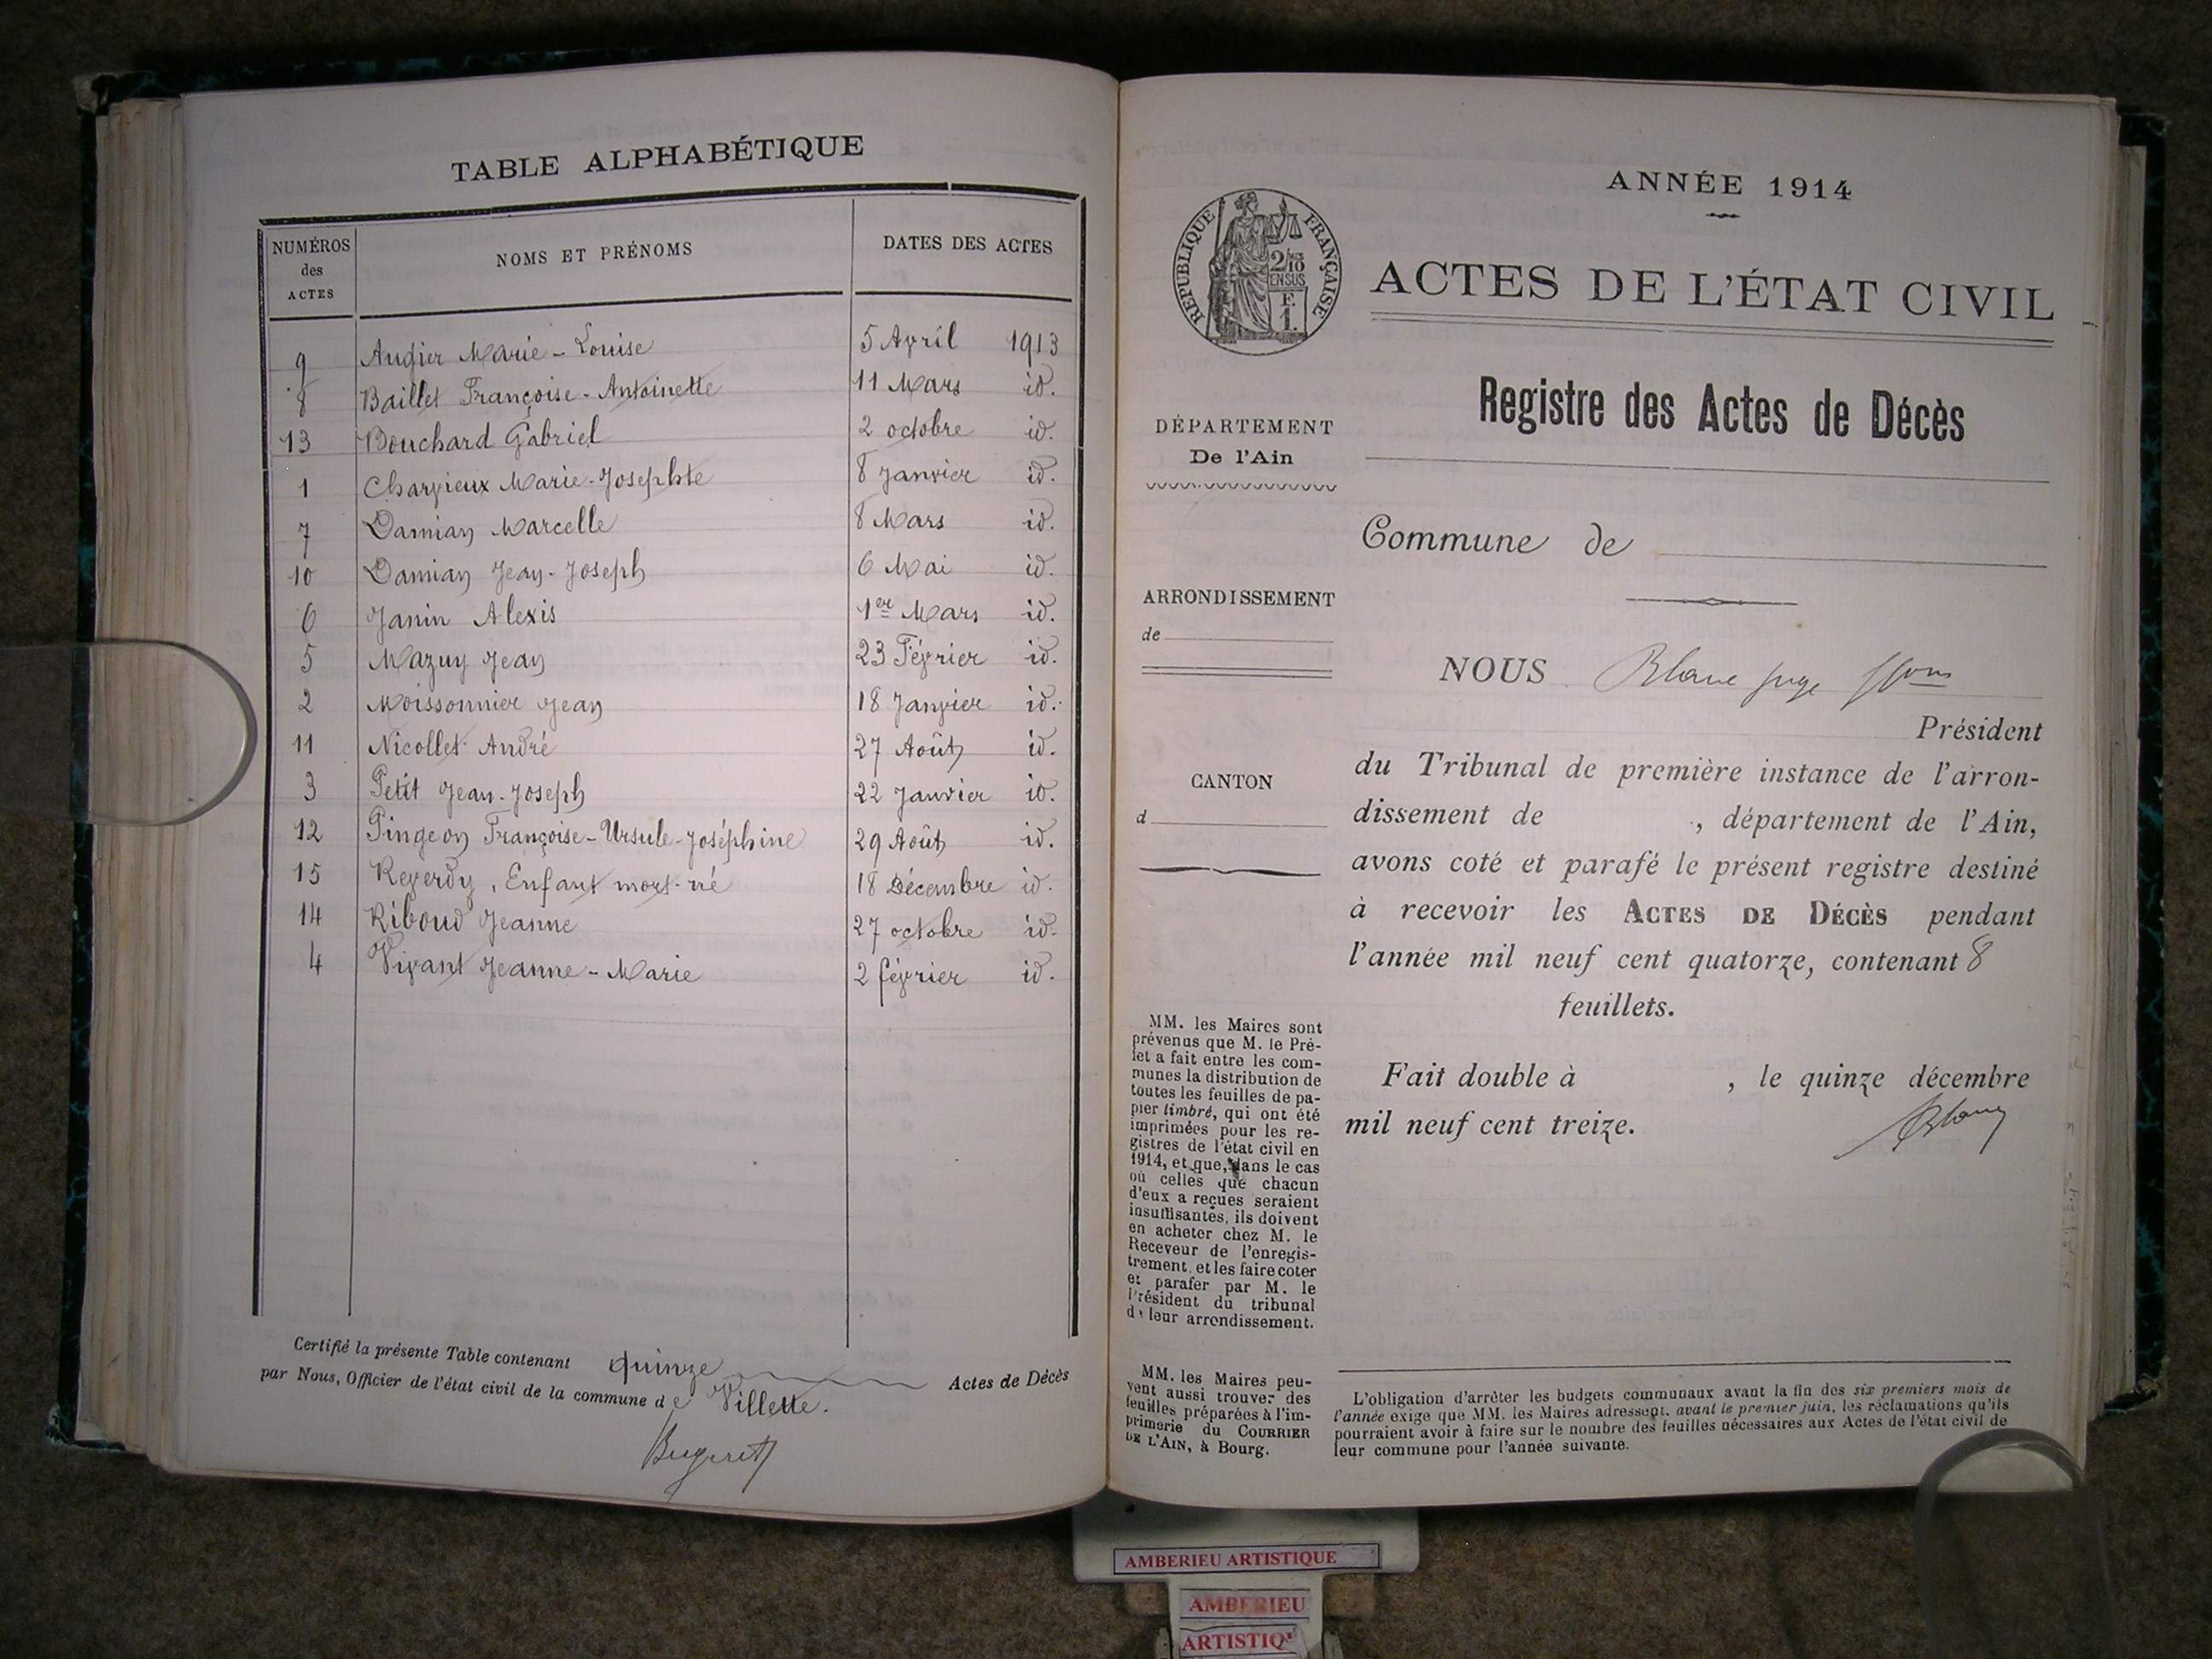 TABLE ALPHABÉTIQUE
NUMÉROS des ACTES NOMS ET PRÉNOMS DATES DES ACTES
9 Augier Marie-Louise 5 Avril 1913
8 Baillet Françoise-Antoinette 11 Mars id.
13 Bouchard Gabriel 2 octobre id.
1 Charvieux Marie-Josephte 8 Janvier id.
7 Damian Marcelle 8 Mars id.
10 Damian Jean-Joseph 6 Mai id.
6 Janin Alexis 1er Mars id.
5 Mazuy Jean 23 Février id.
2 Moissonnier Jean 18 Janvier id.
11 Nicollet André 27 Août id.
3 Petit Jean-Joseph 22 Janvier id.
12 Pingeon Françoise-Ursule-Joséphine 29 Août id.
15 Reverdy, Enfant mort-né 18 Décembre id.
14 Riboud Jeanne 27 octobre id.
4 Vivant Jeanne-Marie 2 février id.
Certifié la présente Table contenant quinze Actes de Décès
par Nous, Officier de l'état civil de la commune de Villette.
ANNÉE 1914
RÉPUBLIQUE FRANÇAISE
2/10
EN SUS
F.
1.
ACTES DE L'ÉTAT CIVIL
Registre des Actes de Décès
DÉPARTEMENT
De l'Ain
ARRONDISSEMENT
de
CANTON
d
MM. les Maires sont
prévenus que M. le Pré-
fet a fait entre les com-
munes la distribution de
toutes les feuilles de pa-
pier timbré, qui ont été
imprimées pour les re-
gistres de l'état civil en
1914, et que, dans le cas
où celles que chacun
d'eux a reçues seraient
insuffisantes, ils doivent
en acheter chez M. le
Receveur de l'enregis-
trement, et les faire coter
et parafer par M. le
Président du tribunal
de leur arrondissement.
MM. les Maires peu-
vent aussi trouver des
feuilles préparées à l'im-
primerie du COURRIER
DE L'AIN, à Bourg.
Commune de
NOUS Blanc juge
Président
du Tribunal de première instance de l'arron-
dissement de , département de l'Ain,
avons coté et parafé le présent registre destiné
à recevoir les ACTES DE DÉCÈS pendant
l'année mil neuf cent quatorze, contenant 8
feuillets.
Fait double à , le quinze décembre
mil neuf cent treize.
Blanc
L'obligation d'arrêter les budgets communaux avant la fin des six premiers mois de
l'année exige que MM. les Maires adressent, avant le premier juin, les réclamations qu'ils
pourraient avoir à faire sur le nombre des feuilles nécessaires aux Actes de l'état civil de
leur commune pour l'année suivante.
AMBERIEU ARTISTIQUE
AMBERIEU
ARTISTIQ